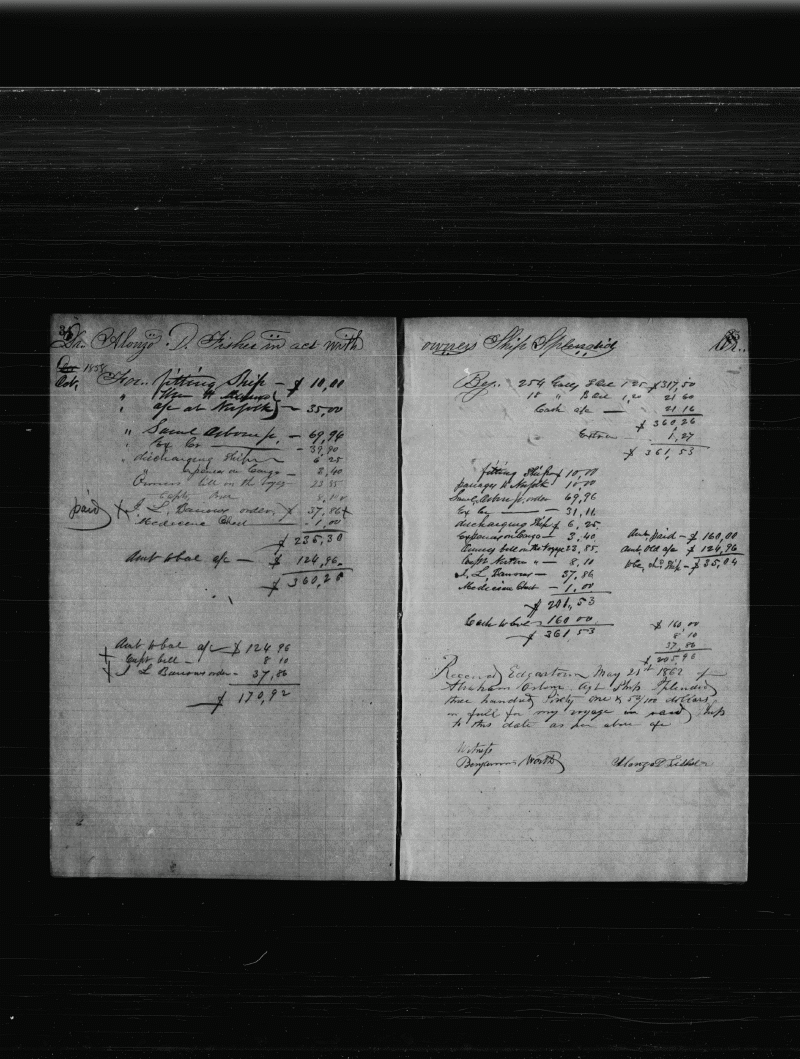 35
Dr. Alonzo D. Fisher in act with
Oct. 1858
For. fitting Ship — $ 10,00
a/c at Norfolk — 35,00
" Saml Osborn Jr. — 69,96
" Ex Co — 39,90
" discharging Ship — 6 25
" expenses on Cargo — 3,40
Owners bill on the voyage 23 85
Capts
paid J. L. Barrows order $ 37,86
Medecine Chest — 1,00
$ 235,30
Amt to bal a/c — $ 124,96
$ 360,26
Amt to bal a/c — $ 124 96
Capt bill — 8 10
J L Barrows order — 37,86
$ 170,92
owners Ship Splendid Cr.
By. 254 Galls 1 25 $ 317,50
18 " 1,20 21 60
Cash a/c — 21 16
$ 360,26
1,27
$ 361,53
fitting Ship $ 10,00
passage to Norfolk 10 00
Saml Osborn Jr. order 69,96
Ex Co — 31,11
discharging Ship $ 6,25
Expenses on Cargo — 3,40
Owners bill on the voyage 23,85
Capt " — 8,10
J, L, Barrows — 37,86
Medecine Chest — 1,00
$ 201,53
Cash to bal — 160 00
$ 361 53
Amt, paid — $ 160,00
Amt, Old a/c $ 124,96
Ship — $ 35,04
$ 160,00
8 10
37,86
$ 205,96
Received Edgartown May 21st 1862 of
Abraham Osborn Agt Ship Splendid
three hundred Sixty one & 53/100 dollars
in full for my voyage in said Ship
to this date as per above a/c
Witness
Benjamin Worth
Alonzo D Fisher